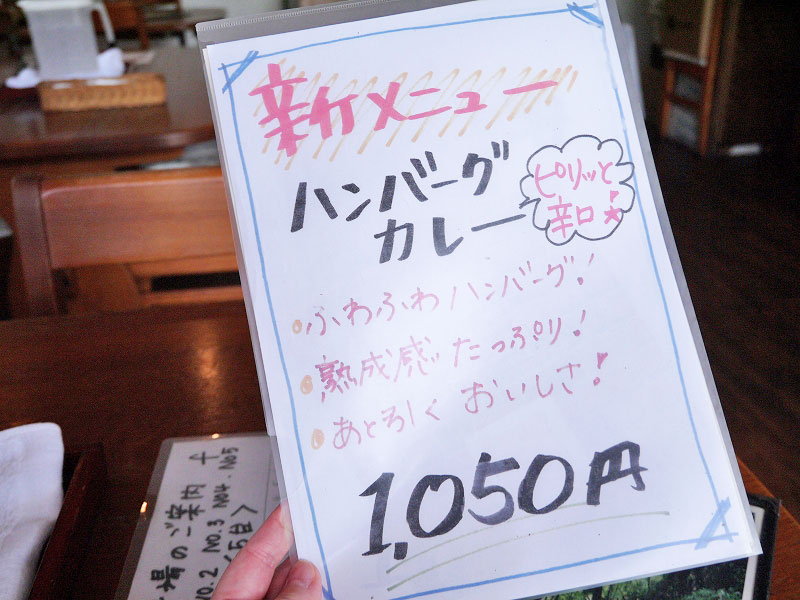 新メニュー
ハンバーグ
カレー
ピリッと
辛口!★
・ふわふわハンバーグ!
・熟成感たっぷり!
・あとひく おいしさ!
1,050円
場のご案内
NO.2 NO.3 NO4. NO5